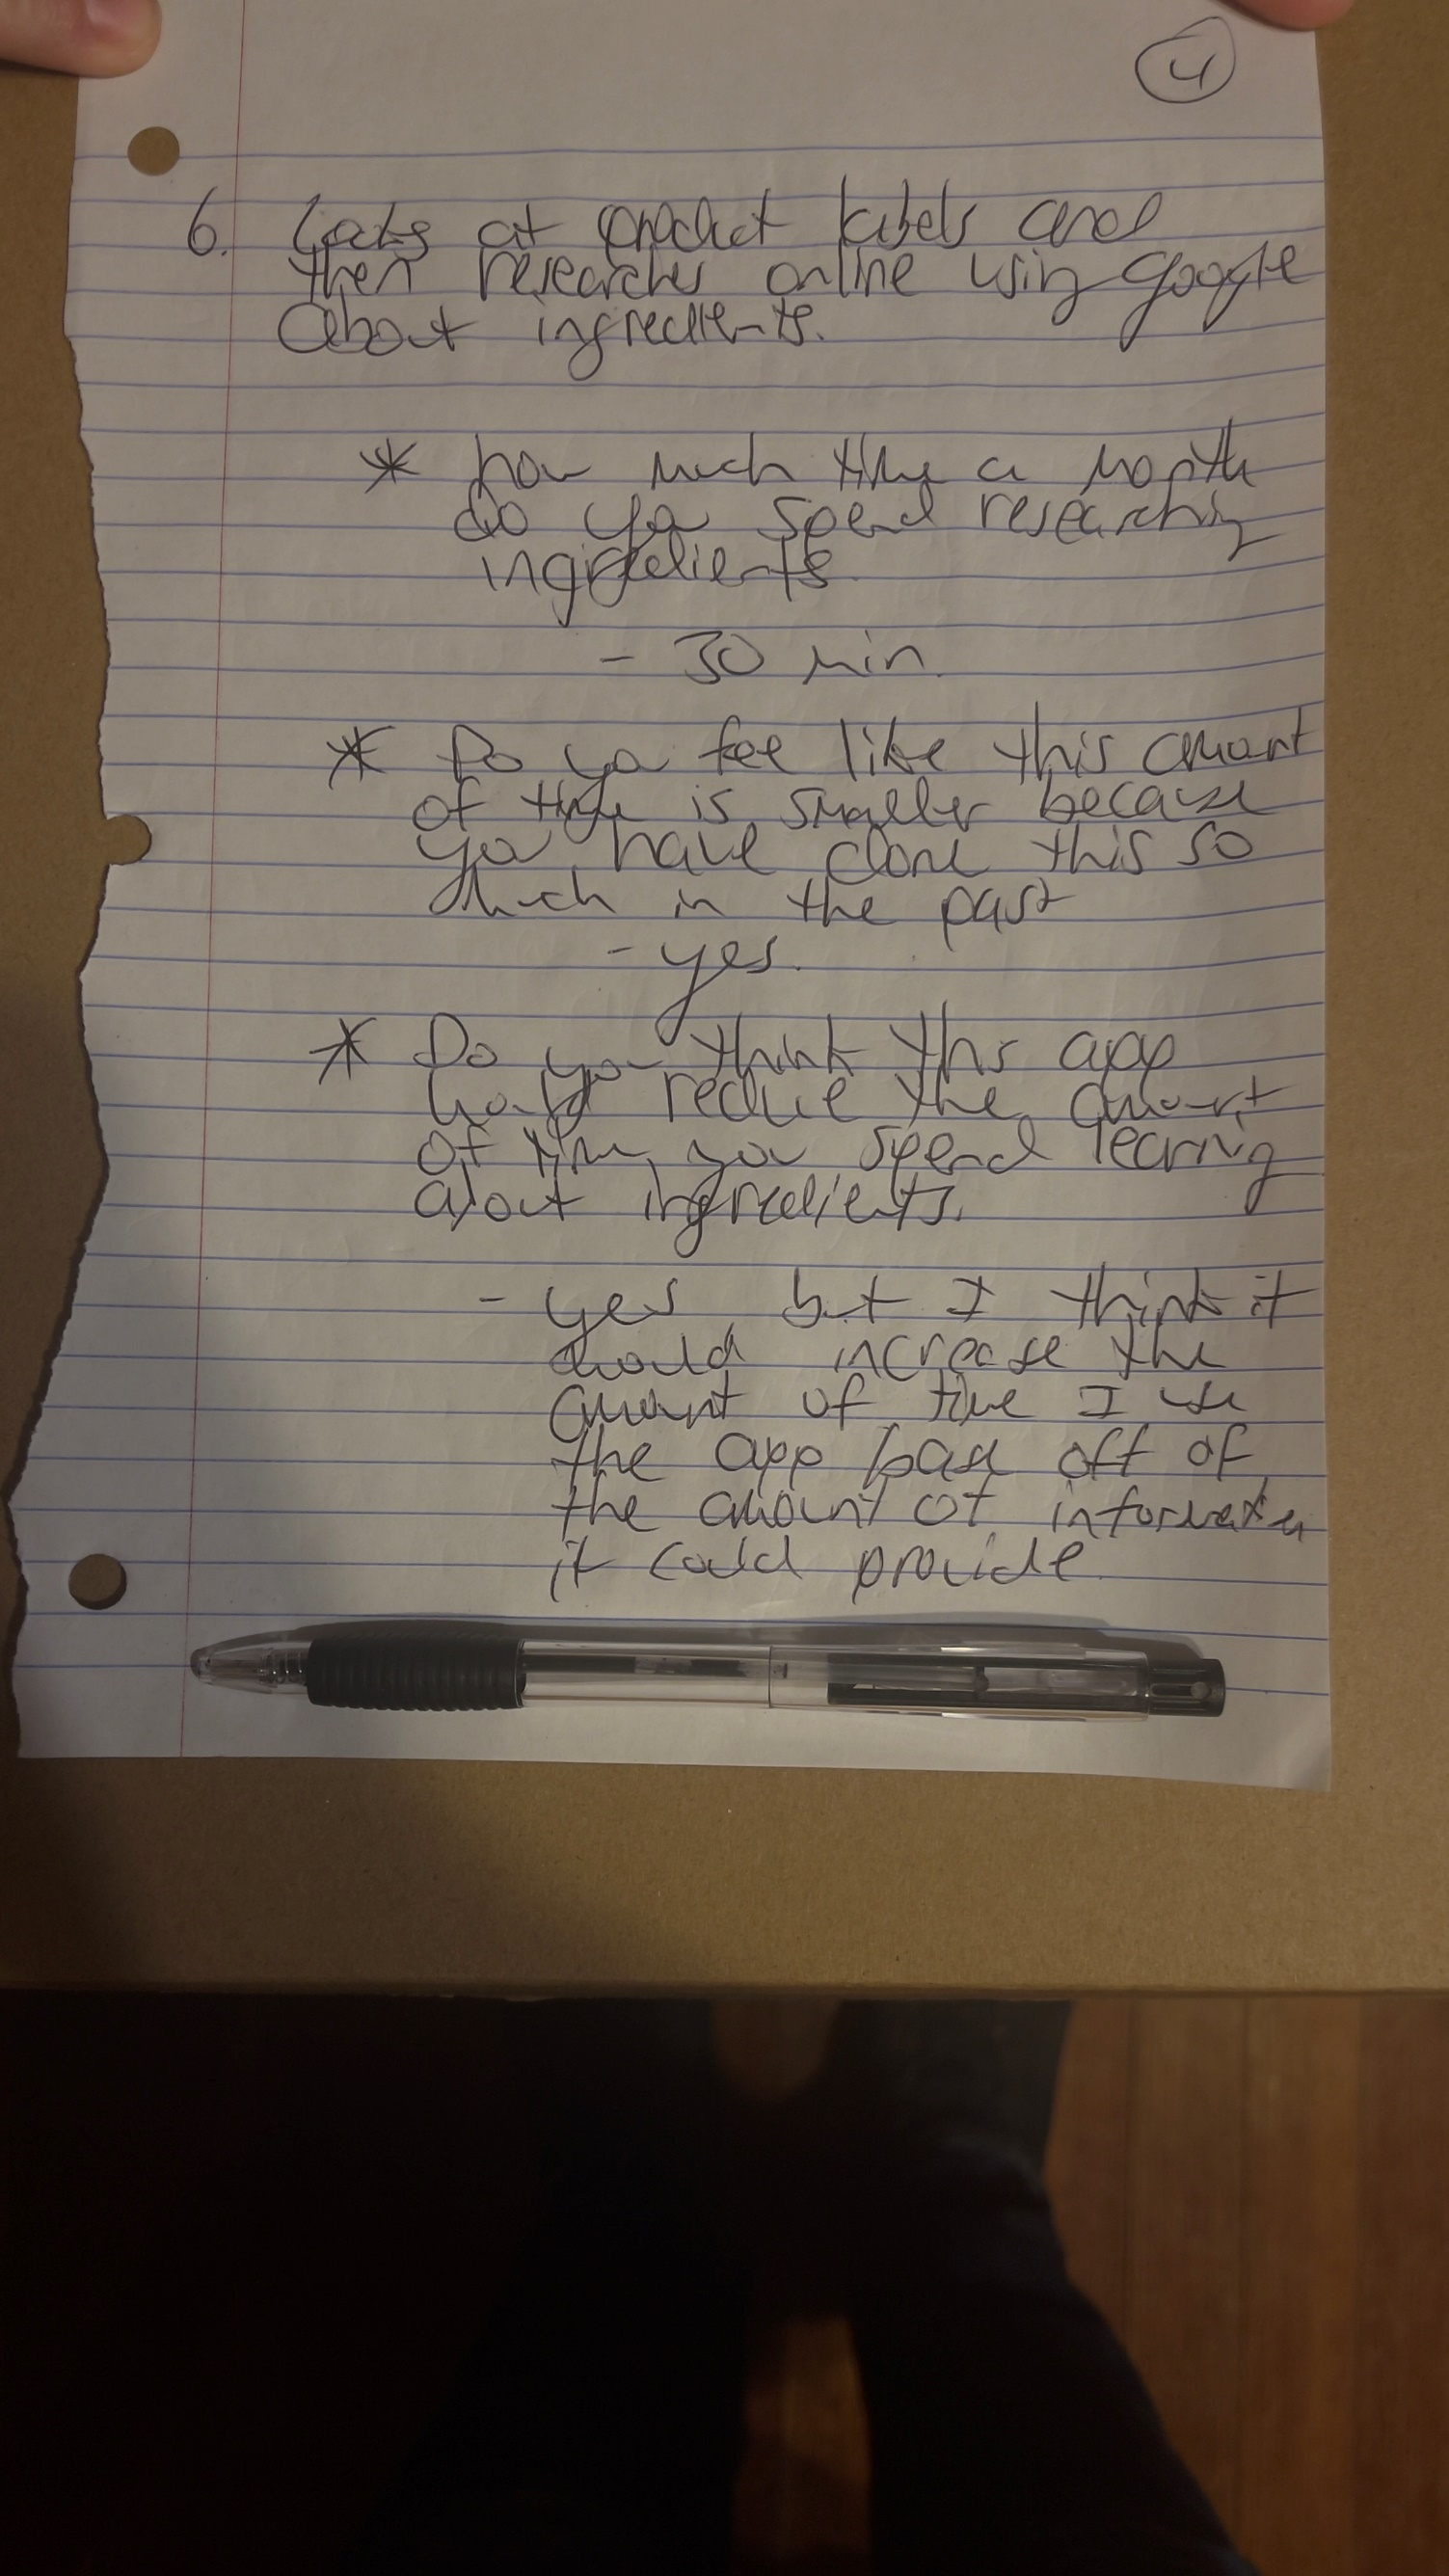 4
6. Looks at product labels and
then researches online using google
about ingredients.
* how much time a month
do you spend researching
ingredients
- 30 min.
* Do you fee like this amount
of time is smaller because
you have done this so
much in the past
- yes.
* Do you think this app
would reduce the amount
of time you spend learning
about ingredients.
- yes but I think it
would increase the
amount of time I use
the app base off of
the amount of information
it could provide